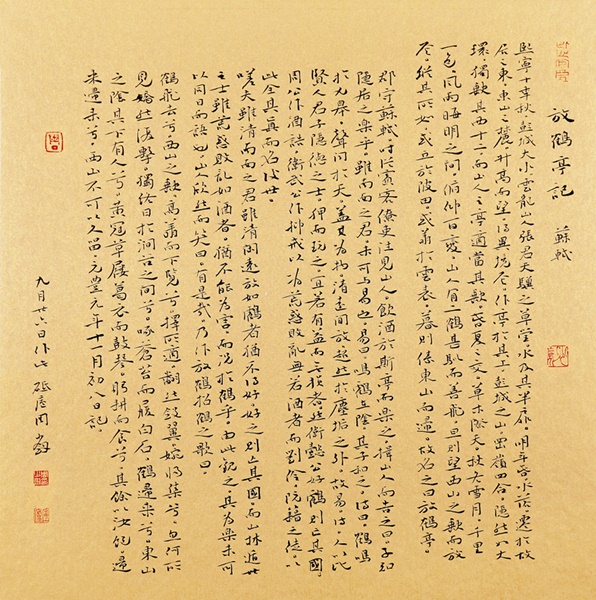 放鶴亭記 蘇軾
熙寧十年秋。彭城大小雲龍山人張君天驥之草堂。水及其半扉。明年春水落。遷於故
居之東。東山之麓。升高而望。得異境焉。作亭於其上。彭城之山。岡嶺四合。隱然如大
環。獨缺其西十二。而山人之亭。適當其缺。春夏之交。草木際天。秋冬雪月。千里
一色。風雨晦明之間。俯仰百變。山人有二鶴。甚馴而善飛。旦則望西山之缺而放
焉。縱其所如。或立於陂田。或翔於雲表。暮則傃東山而歸。故名之曰放鶴亭。
郡守蘇軾時從賓客僚吏往見山人。飲酒於斯亭而樂之。揖山人而告之曰。子知
隱居之樂乎。雖南面之君。未可與易也。易曰。鳴鶴在陰。其子和之。詩曰。鶴鳴
於九皋。聲聞於天。蓋其為物。清遠閒放。超然於塵垢之外。故易。詩。人以比
賢人君子隱德之士。狎而玩之。宜若有益而無損者。然衛懿公好鶴則亡其國
周公作酒誥。衛武公作抑戒。以為荒惑敗亂。無若酒者。而劉伶阮籍之徒。以
此全其真而名後世。
嗟夫。雖清南面之君雖清閒遠放如鶴者。猶不得好。好之則亡其國。而山林遯世
之士。雖荒惑敗亂如酒者。猶不能為害。而況於鶴乎。由此觀之。其為樂未可
以同日而語也。山人欣然而笑曰。有是哉。乃作放鶴招鶴之歌曰
鶴飛去兮。西山之缺。高翔而下覽兮。擇所適。翻然斂翼。婉將集兮。忽何所
見。矯然復擊。獨終日於澗谷之間兮。啄蒼苔而履白石。鶴歸來兮。東山
之陰。其下有人兮。黃冠草屨。葛衣而鼓琴。躬耕而食兮。其餘以汝飽。歸
來歸來兮。西山不可以久留。元豐元年十一月初八日記。
九月廿六日作此 周